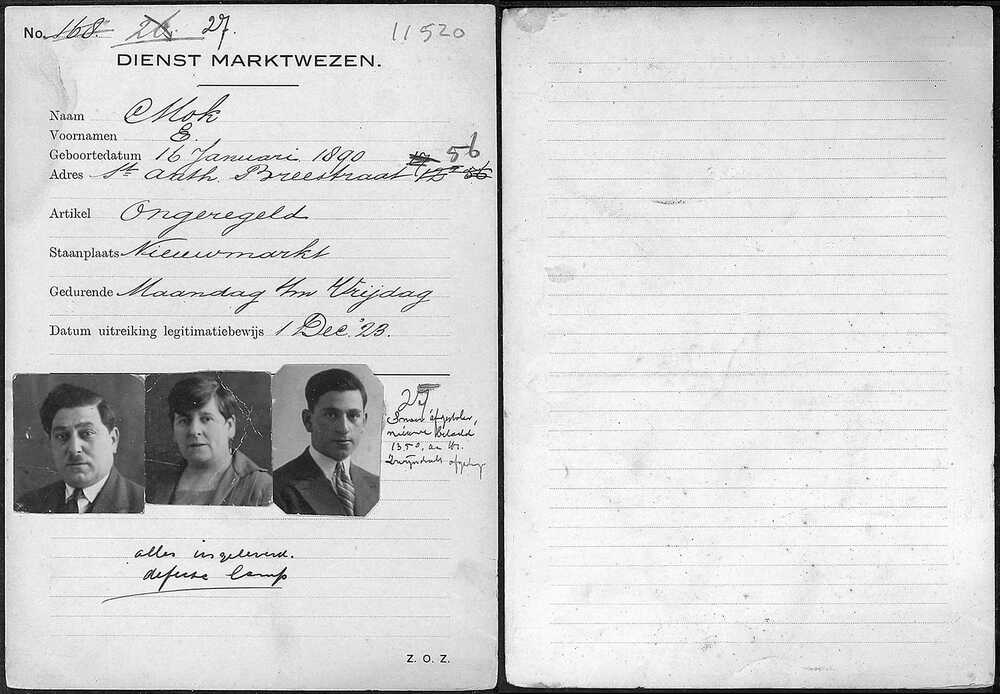 No. 168. 26. 27.
11520
DIENST MARKTWEZEN.
Naam Mok
Voornamen E.
Geboortedatum 16 Januari 1890
56
Adres St. Anth. Breestraat
Artikel Ongeregeld
Staanplaats Nieuwmarkt
Gedurende Maandag t/m Vrijdag
Datum uitreiking legitimatiebewijs 1 Dec. '23.
27
nieuwe
alles ingeleverd.
defecte lamp
Z. O. Z.